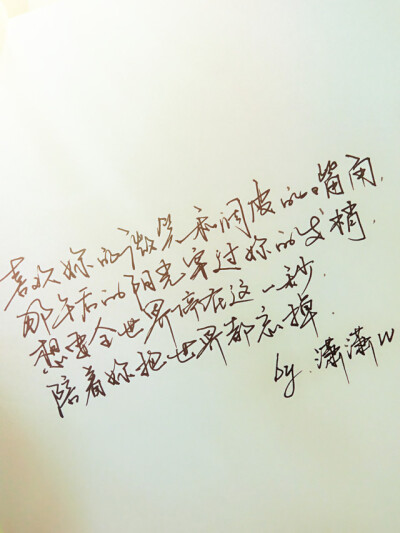 喜欢妳的微笑和调皮的嘴角.
那午后的阳光穿过妳的发梢.
想要全世界停在这一秒.
陪着妳把世界都忘掉.
by.潇潇W